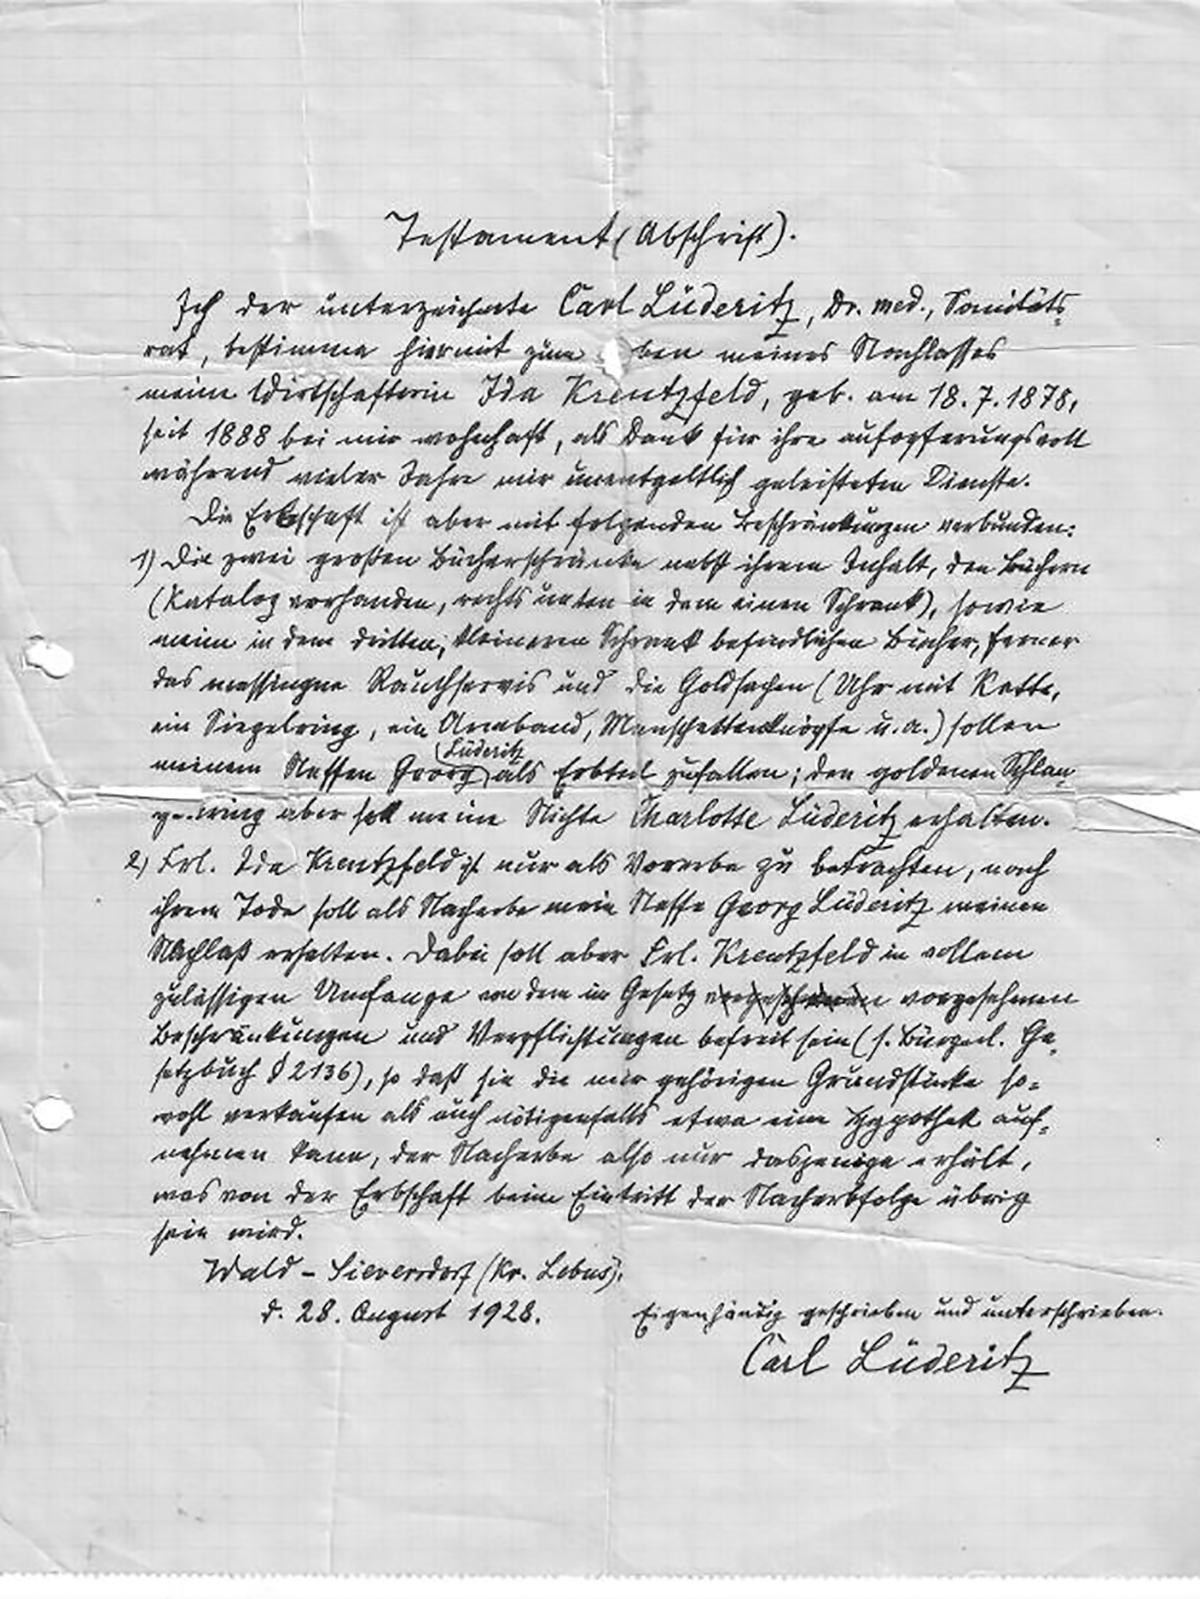 Testament (Abschrift).
Ich der unterzeichnete Carl Lüderitz, Dr. med., Sanitäts-
rat, bestimme hiermit zum ben meines Nachlasses
meine Wirtschafterin Ida Krentzfeld, geb. am 18. 7. 1878,
seit 1888 bei mir wohnhaft, als Dank für ihre aufopferungsvoll
während vieler Jahre mir unentgeltlich geleisteten Dienste.
Die Erbschaft ist aber mit folgenden Beschränkungen verbunden:
1) Die zwei großen Bücherschränke nebst ihrem Inhalt, den Büchern
(Katalog vorhanden, rechts unten in dem einen Schrank), sowie
meine in dem dritten, kleineren Schrank befindlichen Bücher, ferner
das messingne Rauchservis und die Goldsachen (Uhr mit Kette,
ein Siegelring, ein Armband, Manschettenknöpfe u. a.) sollen
meinem Neffen Georg Lüderitz als Erbteil zufallen; den goldenen Schlan-
ge..ring aber soll meine Nichte Charlotte Lüderitz erhalten.
2) Frl. Ida Krentzfeld ist nur als Vorerbe zu betrachten, nach
ihrem Tode soll als Nacherbe mein Neffe Georg Lüderitz meinen
Nachlaß erhalten. Dabei soll aber Frl. Krentzfeld in vollem
zulässigen Umfange von dem im Gesetz vorgesehenen
Beschränkungen und Verpflichtungen befreit sein (s. Bürgerl. Ge-
setzbuch § 2136), so daß sie die mir gehörigen Grundstücke so-
wohl verkaufen als auch nötigenfalls etwa eine Hypothek auf-
nehmen kann, der Nacherbe also nur dasjenige erhält,
was von der Erbschaft beim Eintritt der Nacherbfolge übrig
sein wird.
Wald-Sieversdorf (Kr. Lebus),
d. 28. August 1928.
Eigenhändig geschrieben und unterschrieben.
Carl Lüderitz